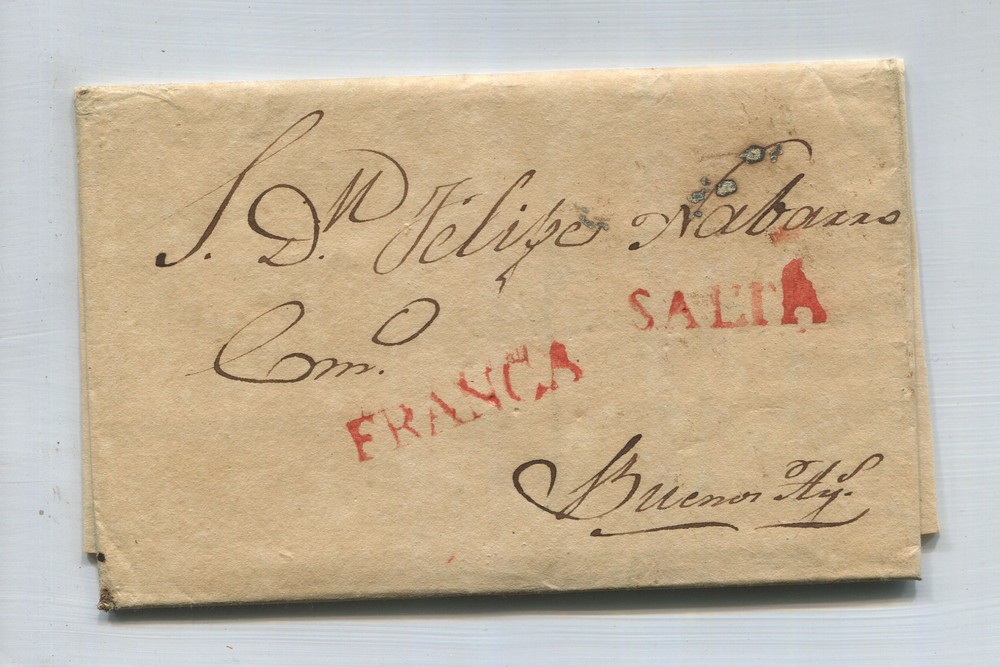 S. Dn Felipe Nabarro
SALTA
Cmo.
FRANCA
Buenos Ays.